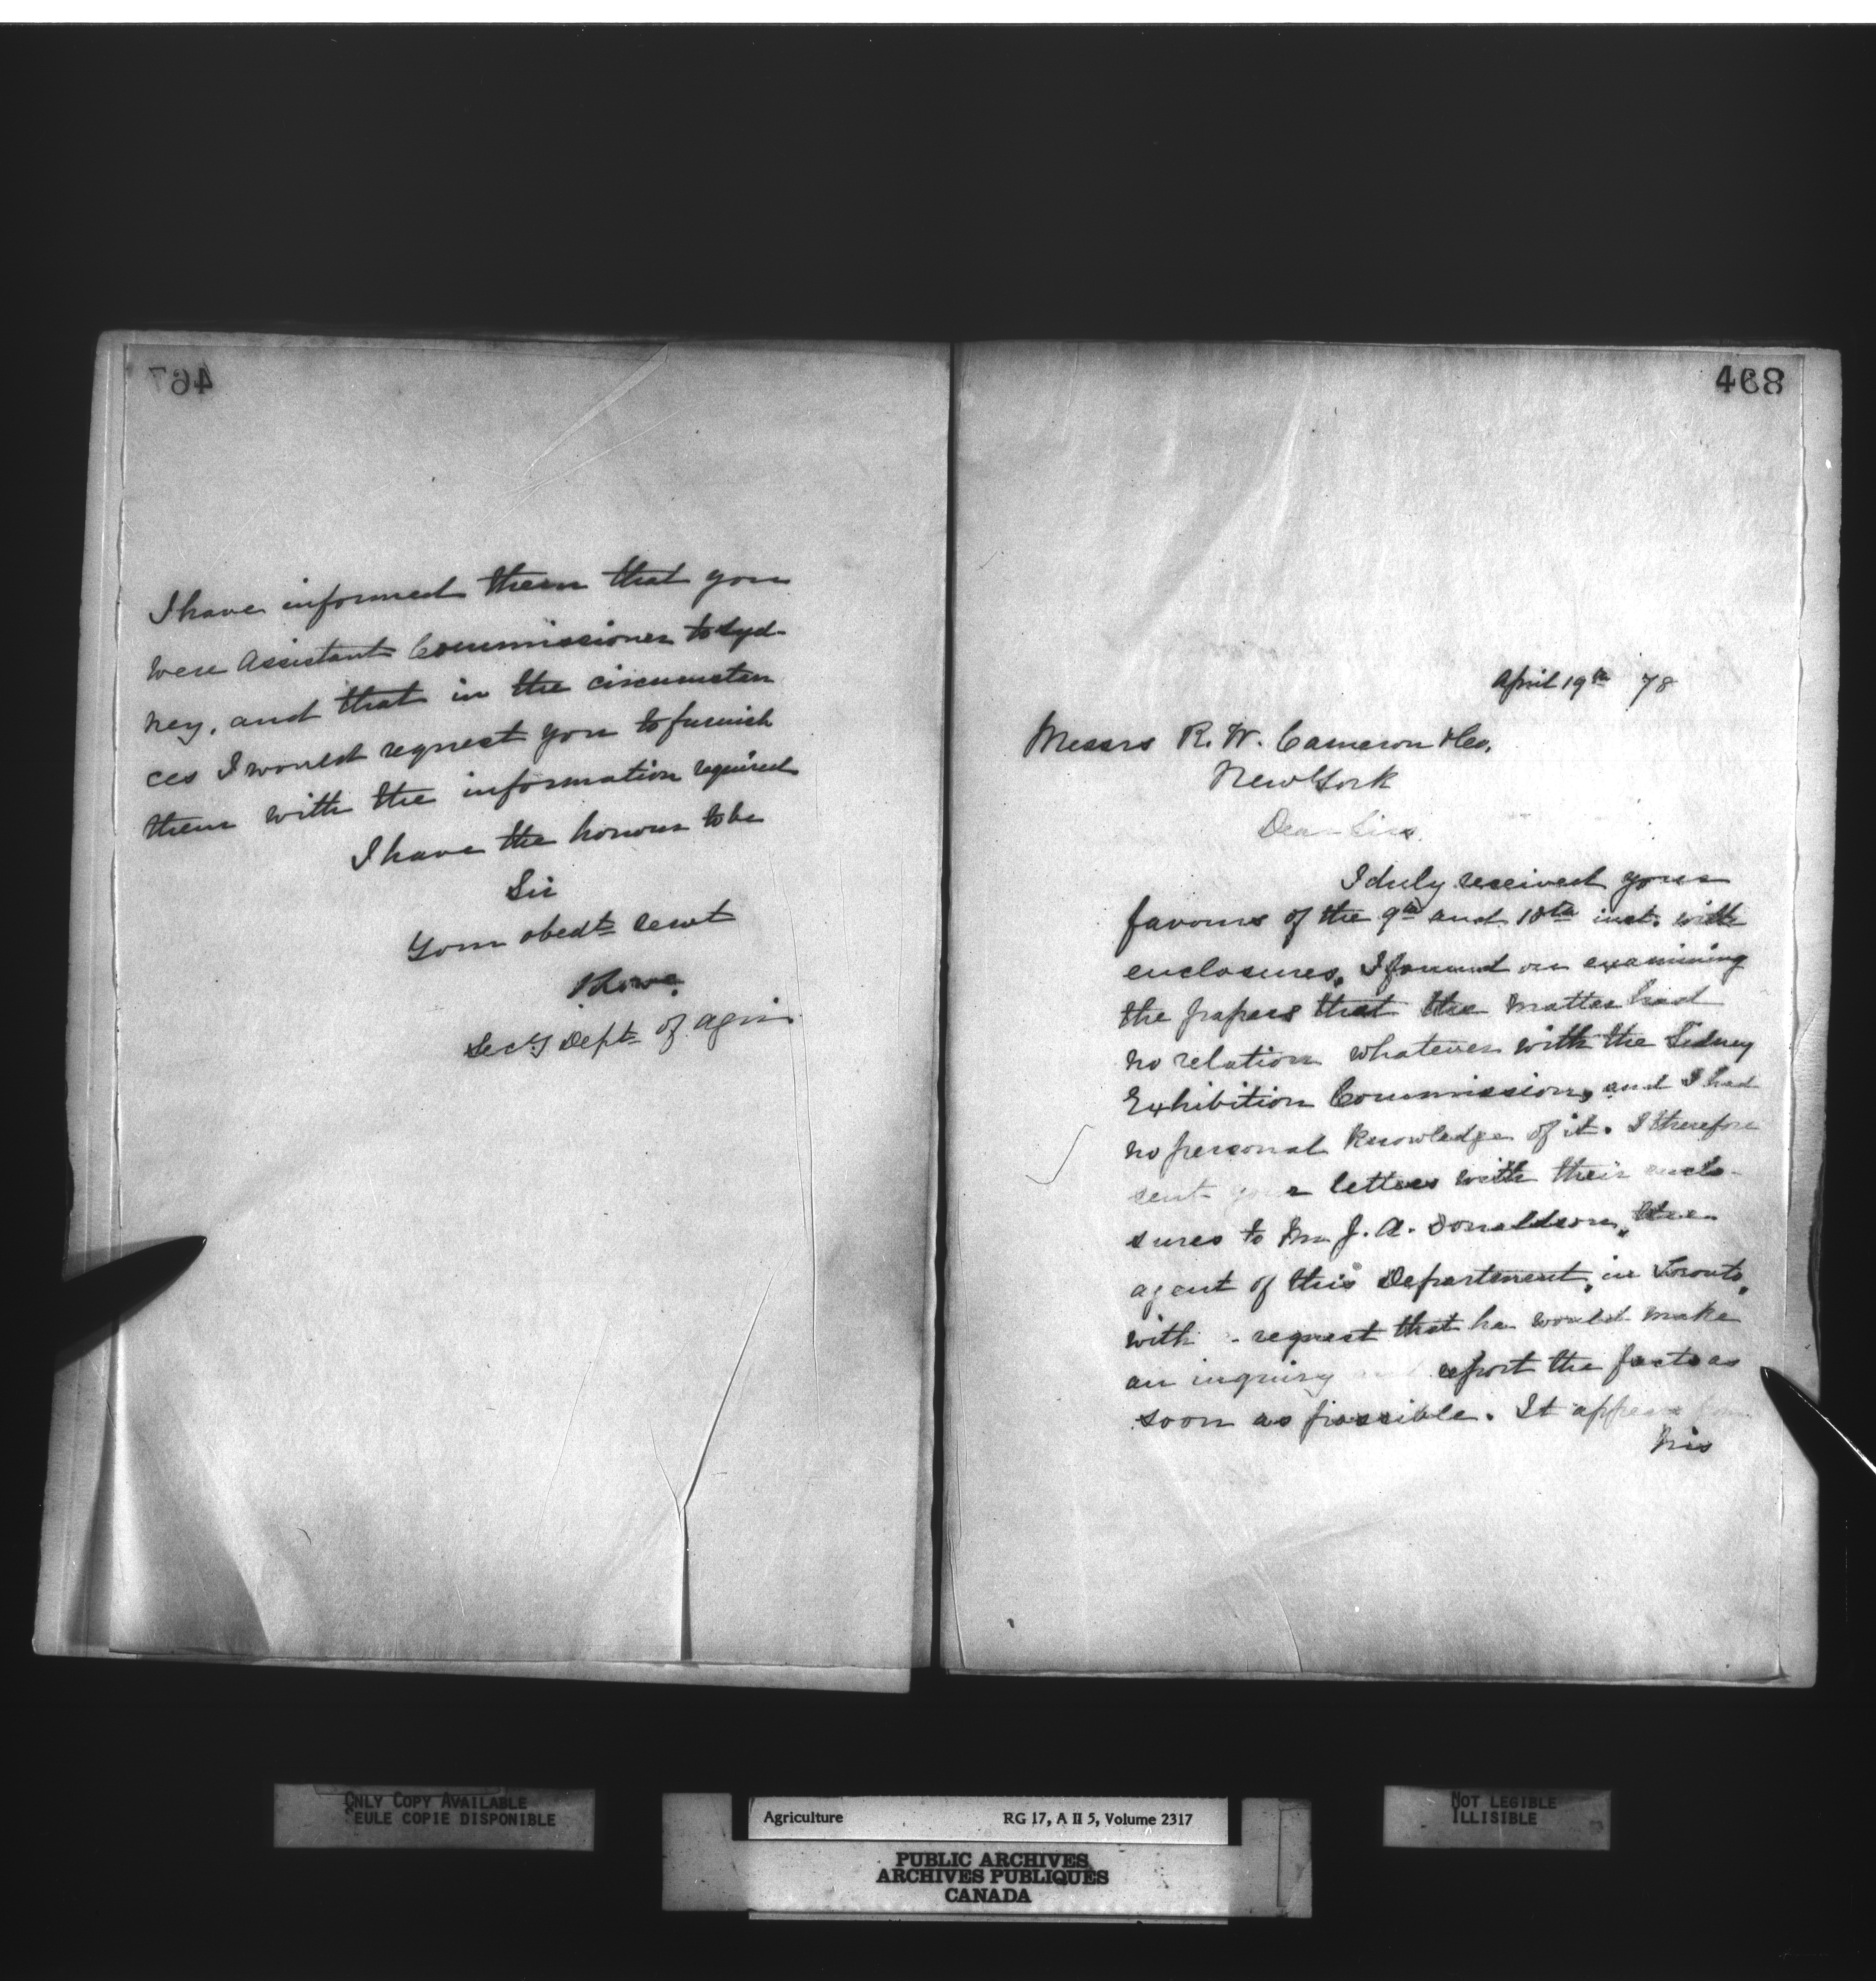 467
I have informed them that you
were Assistant Commissioner to Syd-
ney, and that in the circumstan
ces I would request you to furnish
them with the information required
I have the honour to be
Sir
Your obedt servt
Secy Dept of Agri
468
April 19th 78
Messrs R. W. Cameron & Co,
New York
Dear Sirs.
I duly received your
favours of the 9th and 10th inst. with
enclosures. I found on examining
the papers that the matter had
no relation whatever with the Sidney
Exhibition Commission, and I had
no personal knowledge of it. I therefore
sent your letters with their enclo-
sures to Mr J. A. Donaldson, the
agent of this Department, in Toronto,
with a request that he would make
an inquiry and report the facts as
soon as possible. It appears from
his
ONLY COPY AVAILABLE
SEULE COPIE DISPONIBLE
Agriculture RG 17, A II 5, Volume 2317
PUBLIC ARCHIVES
ARCHIVES PUBLIQUES
CANADA
NOT LEGIBLE
ILLISIBLE